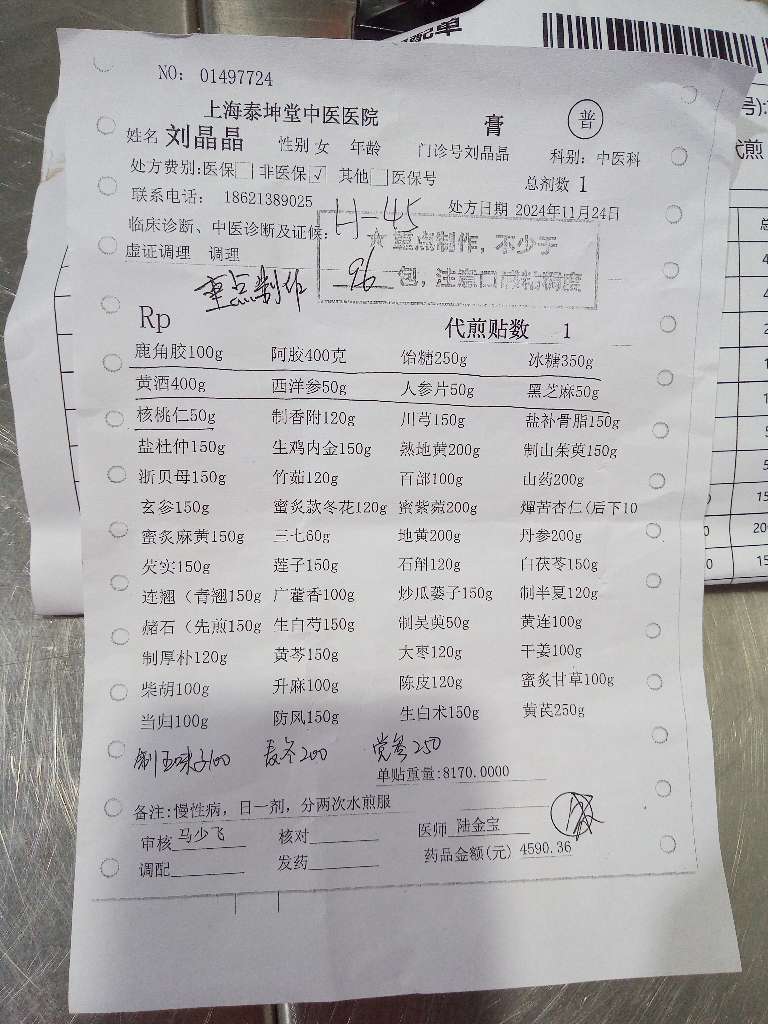 配单
NO: 01497724
上海泰坤堂中医医院 膏 普
号):
姓名 刘晶晶 性别 女 年龄 门诊号刘晶晶 科别: 中医科
代煎
处方费别:医保□ 非医保☑ 其他□医保号 总剂数 1
联系电话: 18621389025 处方日期 2024年11月24日
临床诊断、中医诊断及证候: H-45
★重点制作, 不少于
虚证调理 调理 96 包, 注意口感粘稠度
重点制作
Rp 代煎贴数 1
鹿角胶100g 阿胶400克 饴糖250g 冰糖350g
黄酒400g 西洋参50g 人参片50g 黑芝麻50g
核桃仁50g 制香附120g 川芎150g 盐补骨脂150g
盐杜仲150g 生鸡内金150g 熟地黄200g 制山茱萸150g
浙贝母150g 竹茹120g 百部100g 山药200g
玄参150g 蜜炙款冬花120g 蜜紫菀200g 燀苦杏仁(后下10
蜜炙麻黄150g 三七60g 地黄200g 丹参200g
芡实150g 莲子150g 石斛120g 白茯苓150g
连翘（青翘150g 广藿香100g 炒瓜蒌子150g 制半夏120g
赭石（先煎150g 生白芍150g 制吴萸50g 黄连100g
制厚朴120g 黄芩150g 大枣120g 干姜100g
柴胡100g 升麻100g 陈皮120g 蜜炙甘草100g
当归100g 防风150g 生白术150g 黄芪250g
制五味子100 麦冬200 党参250
单贴重量:8170.0000
备注:慢性病, 日一剂, 分两次水煎服
审核 马少飞 核对 医师 陆金宝
调配 发药 药品金额(元) 4590.36